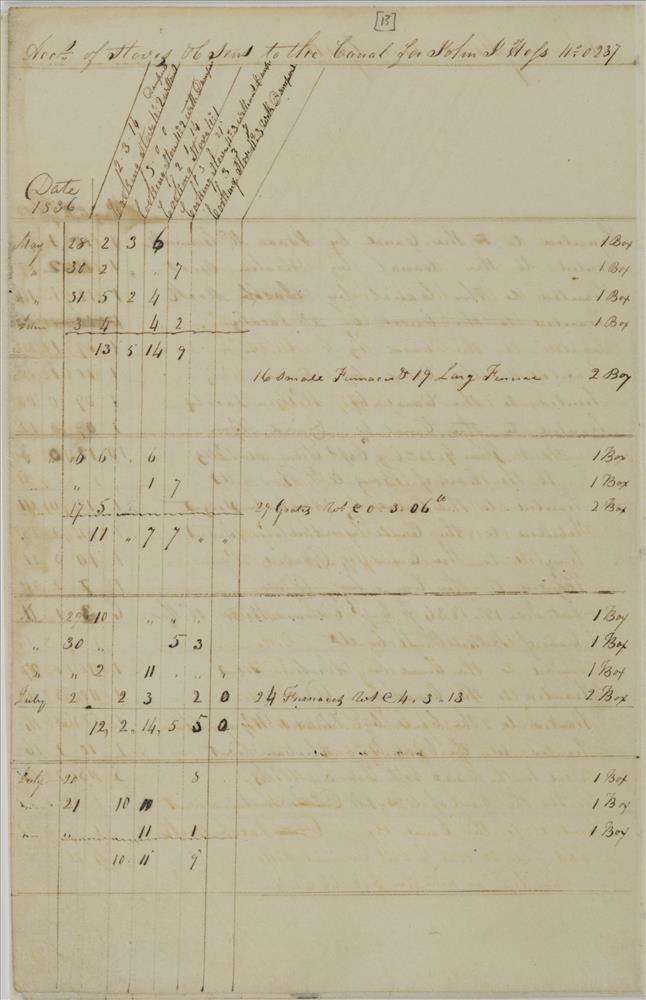 [13]
Acct. of Stoves &c Sent to the Canal for John I Hess No 0237
2 3 14
Cooking Stove No 2 without Dampers
3 0 0
Cooking Stove No 2 with Dampers
1 2 14
Cooking Stove No 1
3 21
Cooking Stove No 3 without Dampers
3 3 7
Cooking Stove No 3 with Dampers
Date
1836
May 28 2 3 6 1 Box
" 30 2 " " 7 1 Box
" 31 5 2 4 1 Box
June 3 4 4 2 1 Box
13 5 14 9
16 Small Furnaces & 19 Larg Furnac 2 Box
16 6 " 6 1 Box
" 1 7 1 Box
17 5 29 Grates Wt C 0 3 06 lb 2 Box
" 11 " 7 7 " "
29 10 " " 1 Box
" 30 " 5 3 1 Box
" " 2 11 1 Box
July 2 2 3 2 0 24 Furnaces Wt C 4. 3. 13 2 Box
12, 2, 14, 5 5 0
July 20 8 1 Box
21 10 11 1 Box
" 11 1 1 Box
10 11 9